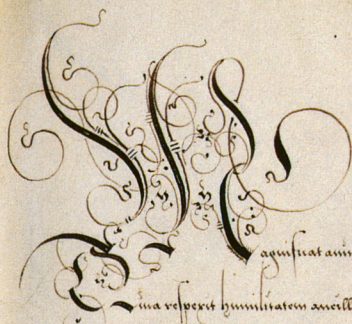 Magnificat anim
Quia respexit humilitatem ancill